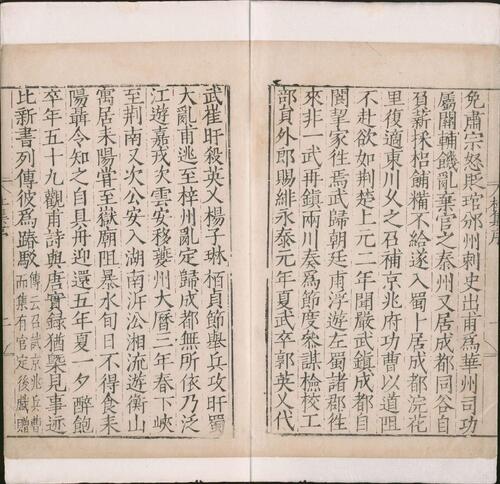 免肅宗怒貶琯邠州刺史出甫為華州司功
屬關輔饑亂棄官之秦州又居成都同谷自
負薪採梠餔糒不給遂入蜀卜居成都浣花
里復適東川久之召補京兆府功曹以道阻
不赴欲如荊楚上元二年聞嚴武鎮成都自
閬挈家往焉武歸朝廷甫浮遊左蜀諸郡往
來非一武再鎮兩川奏為節度參謀檢校工
部員外郎賜緋永泰元年夏武卒郭英乂代
武崔旰殺英乂楊子琳栢貞節舉兵攻旰蜀
大亂甫逃至梓州亂定歸成都無所依乃泛
江遊嘉戎次雲安移夔州大曆三年春下峽
至荊南又次公安入湖南沂沿湘流遊衡山
寓居耒陽嘗至嶽廟阻暴水旬日不得食耒
陽聶令知之自具舟迎還五年夏一夕醉飽
卒年五十九觀甫詩與唐實錄猶槩見事迹
比新書列傳彼為踳駮
傳云召試京兆兵曹
而集有官定後戲贈